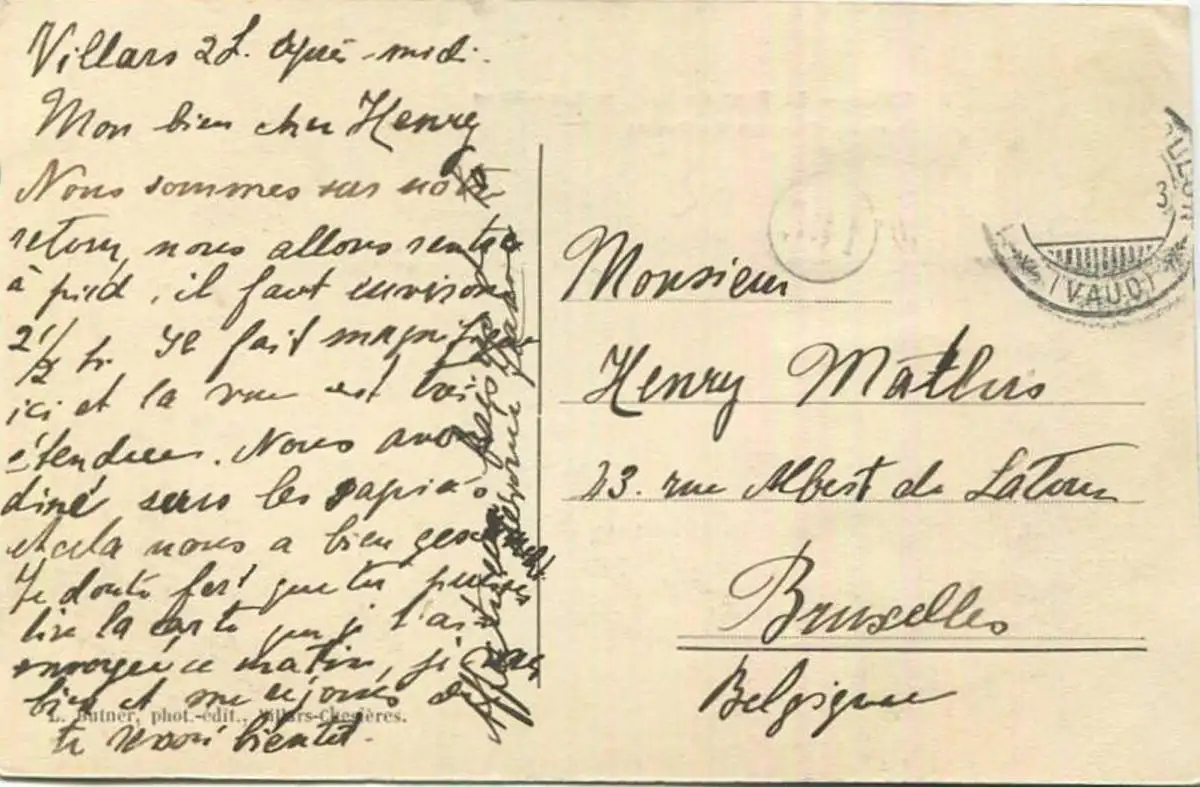 Villars 2 L. après-midi.
Mon bien cher Henry
Nous sommes sur notre
retour, nous allons rentrer
à pied, il faut environ
2 1/2 h. Il fait magnifique
ici et la vue est très
étendue. Nous avons
diné sous les sapins
et cela nous a bien
Je doute fort que tu puisses
lire la carte que je t'ai
envoyée ce matin, je vais
bien et me réjouis de
te revoir bientôt.
Monsieur
Henry Mathus
23. rue Albert de Latour
Bruxelles
Belgique
(VAUD)
3
L. Butner, phot.-édit., Villars-Chesières.